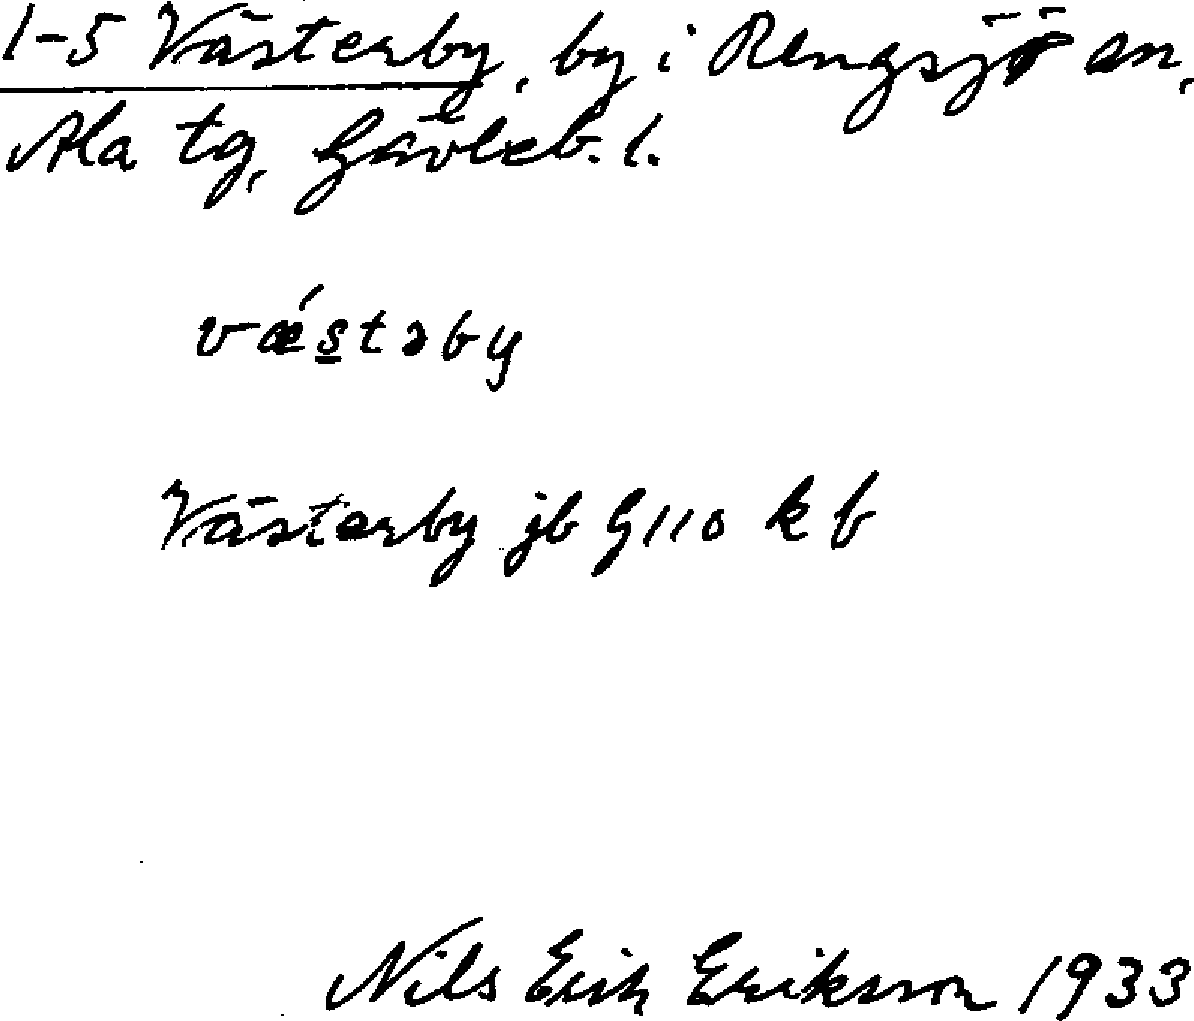 1-5 Västerby, by i Rengsjö sn,
Ala tg, Gävleb. l.
vǽs̲təby
Västerby jb G110 k b
Nils Erik Eriksson 1933